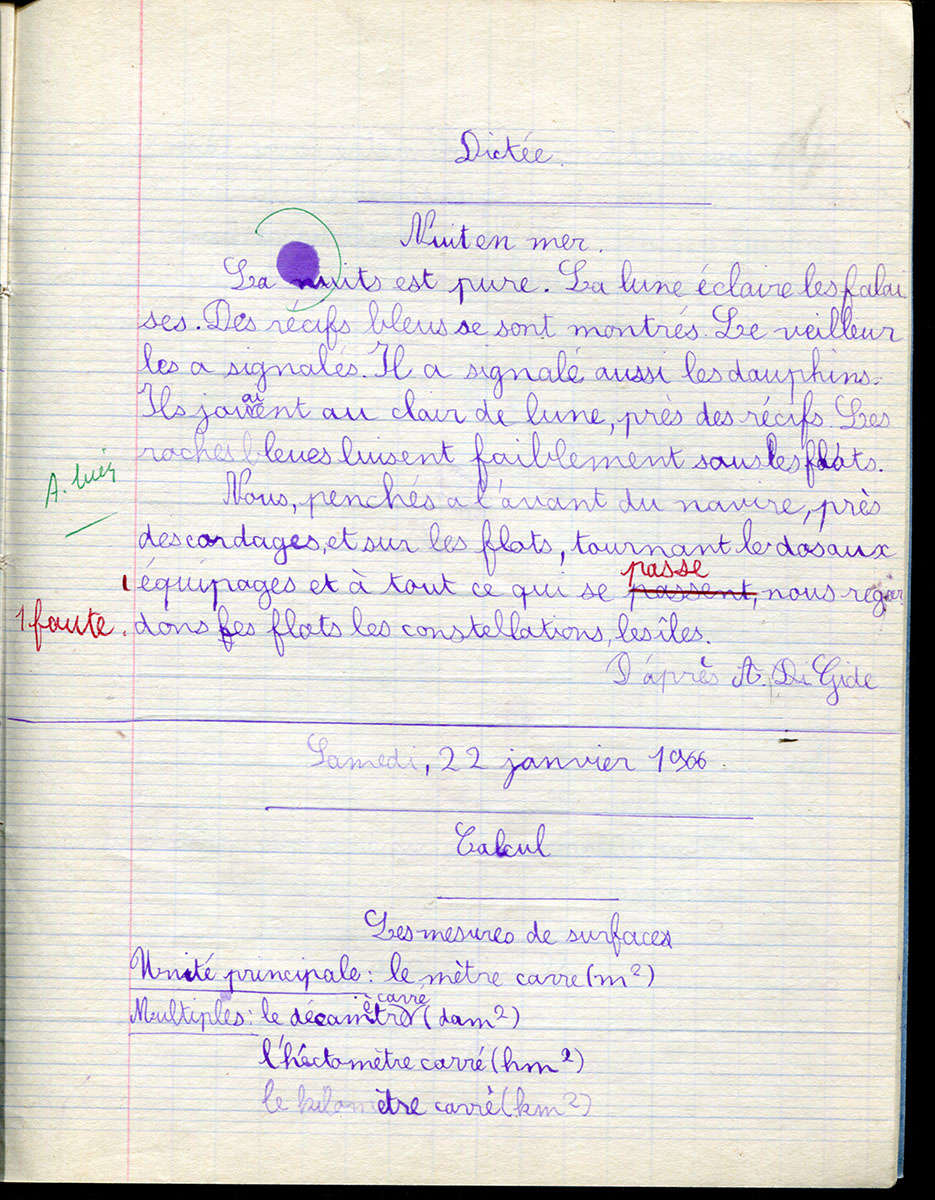 Dictée.
Nuit en mer.
La nuits est pure. La lune éclaire les falai
ses. Des récifs bleus se sont montrés. Le veilleur
les a signalés. Il a signalé aussi les dauphins.
Ils jouaient au clair de lune, près des récifs. Les
roches bleues luisent faiblement sous les flots.
A. lier
Nous, penchés a l'avant du navire, près
des cordages, et sur les flots, tournant le dos aux
passe
équipages et à tout ce qui se passent, nous regar
1 faute. dons les flots les constellations, les îles.
D'après A. De Gide
Samedi, 22 janvier 1966.
Calcul
Les mesures de surfaces
Unité principale : le mètre carre (m²)
Multiples : le décamètre carré (dam²)
l'héctomètre carré (hm²)
le kilomètre carré (km²)